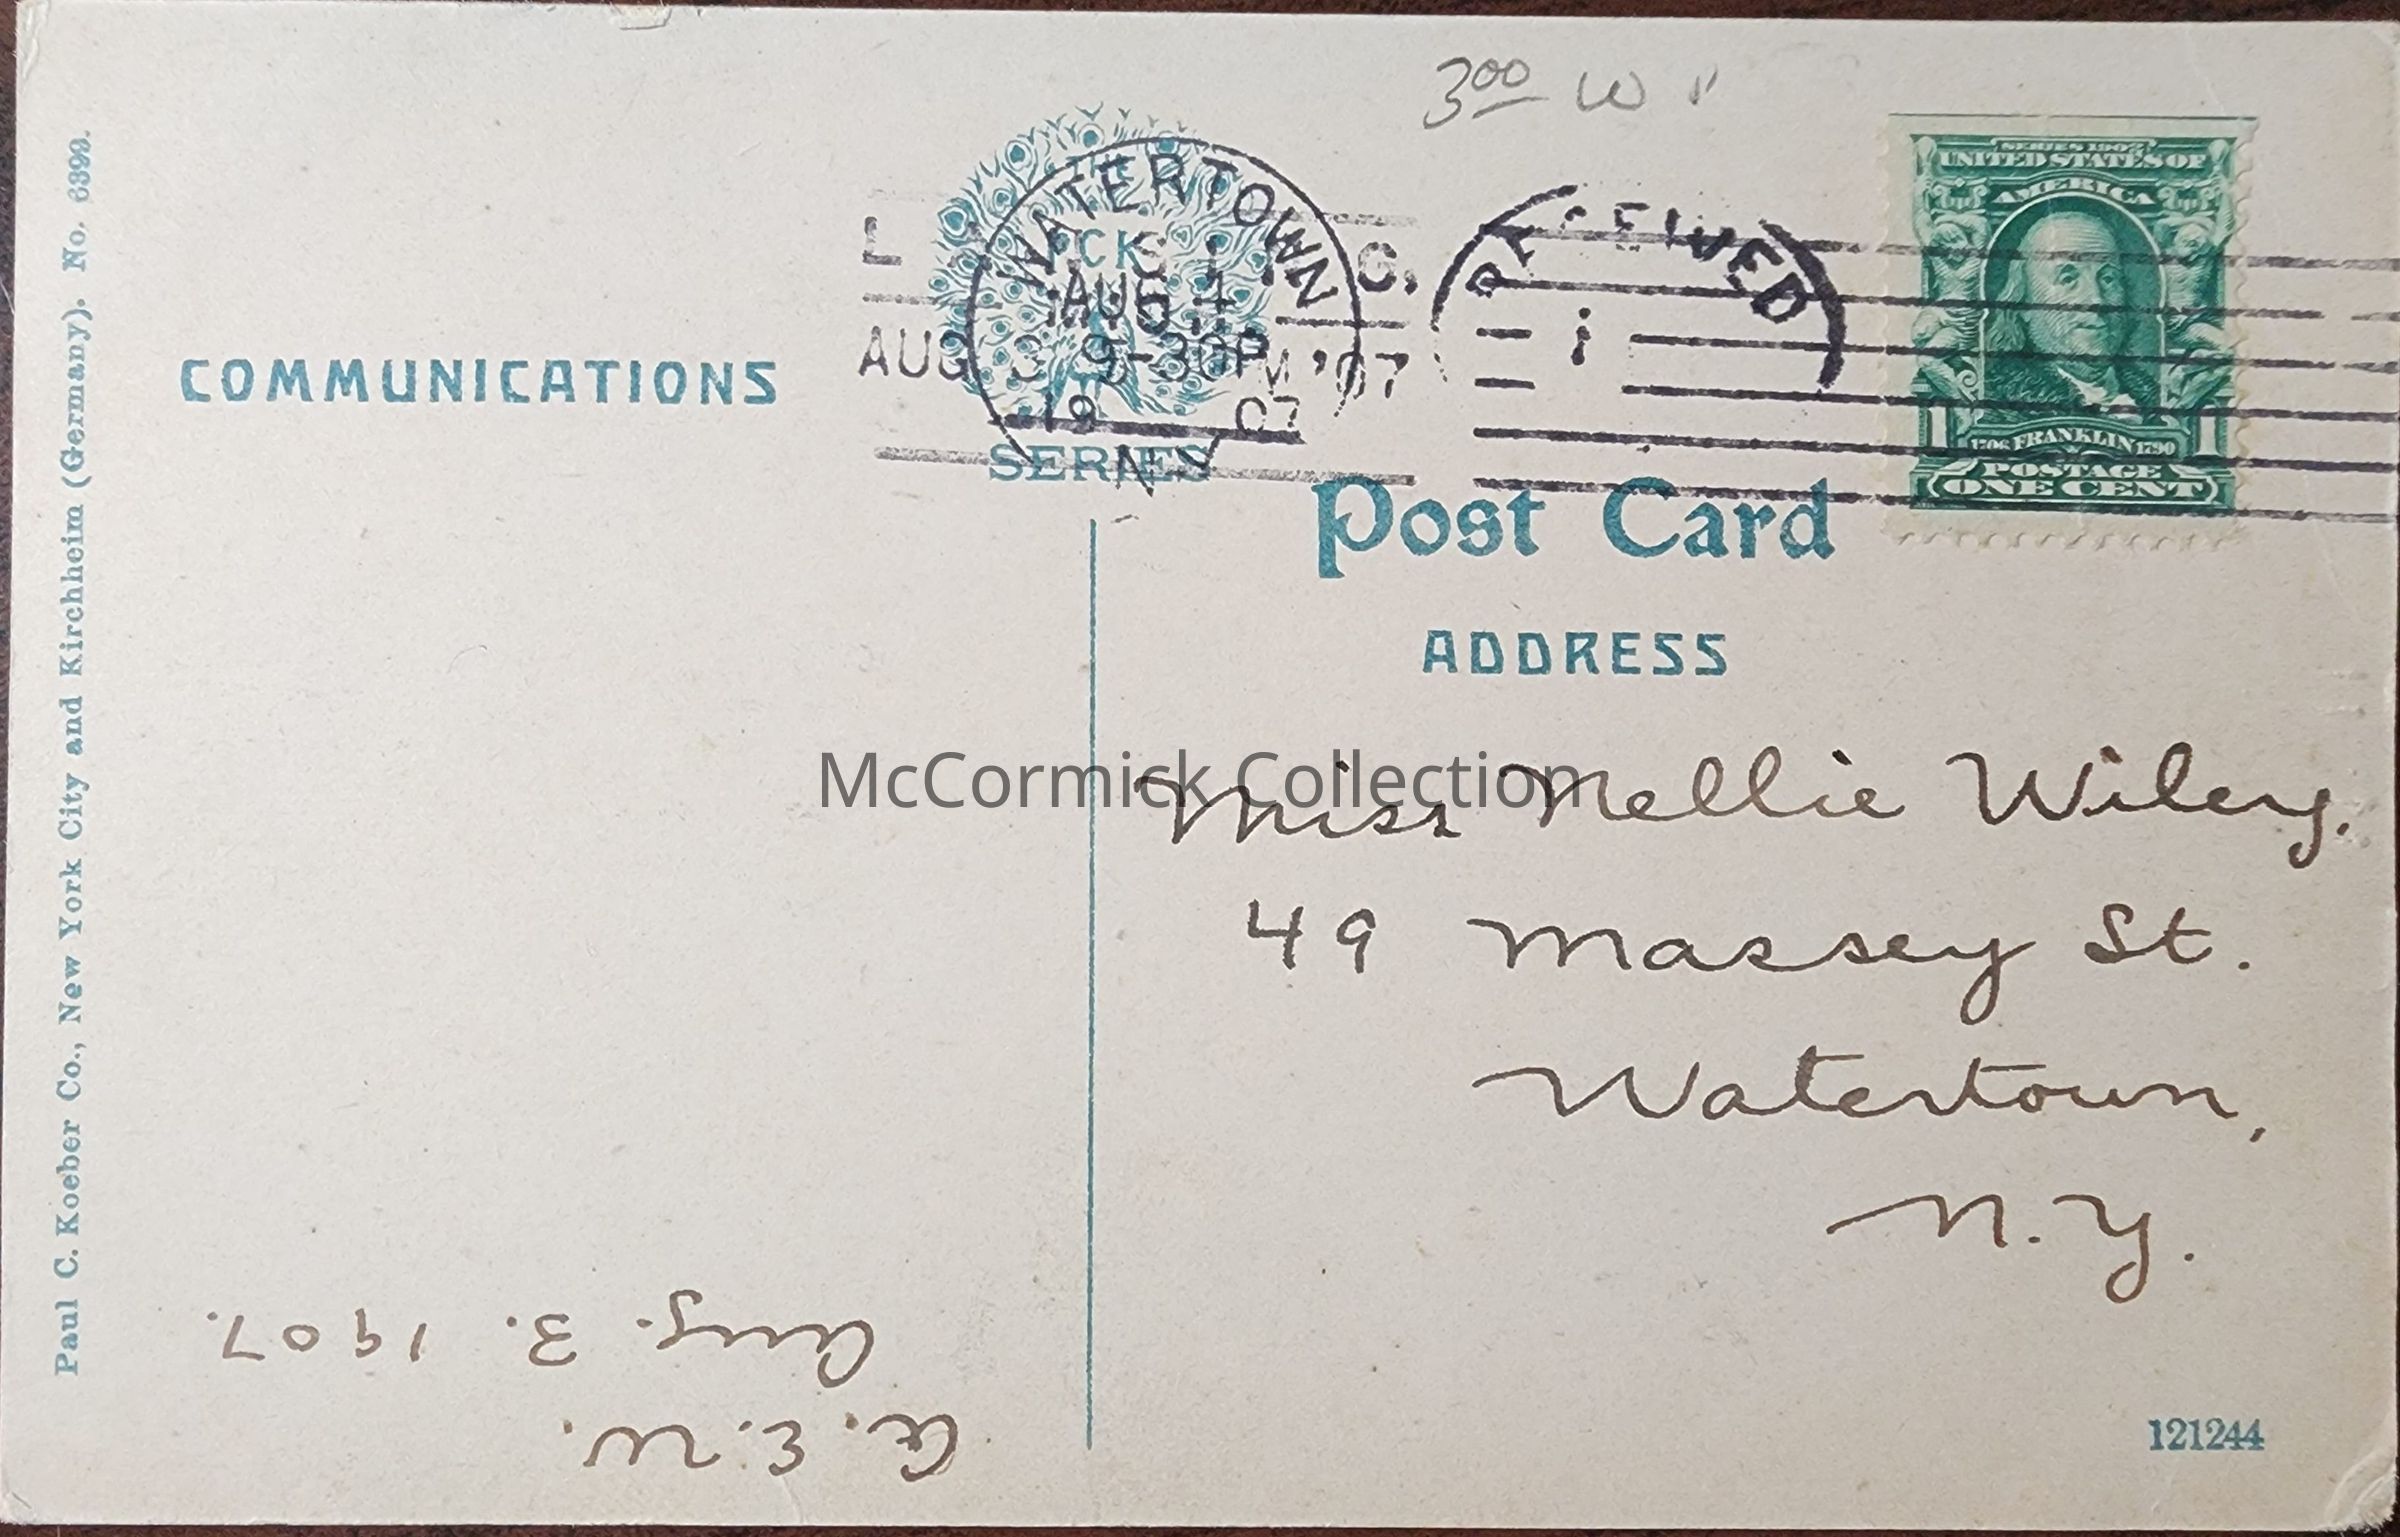 3 00 W
Paul C. Koeber Co., New York City and Kirchheim (Germany). No. 6393.
WATERTOWN
AUG 4
9-30P
1907
N.Y.
AUG 3
M '07
RECEIVED
1
SERIES 1902
UNITED STATES OF
AMERICA
1706 FRANKLIN 1790
1 1
POSTAGE
ONE CENT
SERIES
COMMUNICATIONS
Post Card
ADDRESS
McCormick Collection
Miss Nellie Wiley.
49 Massey St.
Watertown,
N.Y.
A. E. W.
Aug. 3. 1907.
121244